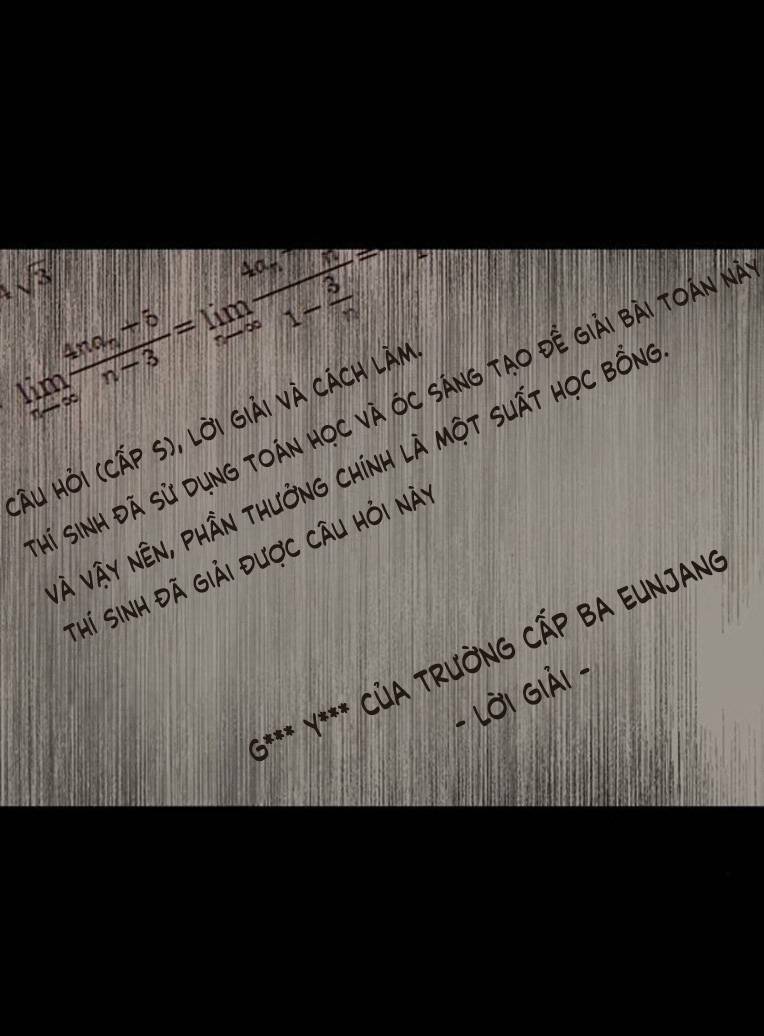 4√3
lim n→∞ 4naₙ - 5 / n - 3 = lim n→∞ 4aₙ - / n / 1 - 3/n =
CÂU HỎI (CẤP S), LỜI GIẢI VÀ CÁCH LÀM.
THÍ SINH ĐÃ SỬ DỤNG TOÁN HỌC VÀ ÓC SÁNG TẠO ĐỂ GIẢI BÀI TOÁN NÀY
VÀ VẬY NÊN, PHẦN THƯỞNG CHÍNH LÀ MỘT SUẤT HỌC BỔNG.
THÍ SINH ĐÃ GIẢI ĐƯỢC CÂU HỎI NÀY
G*** Y*** CỦA TRƯỜNG CẤP BA EUNJANG
- LỜI GIẢI -